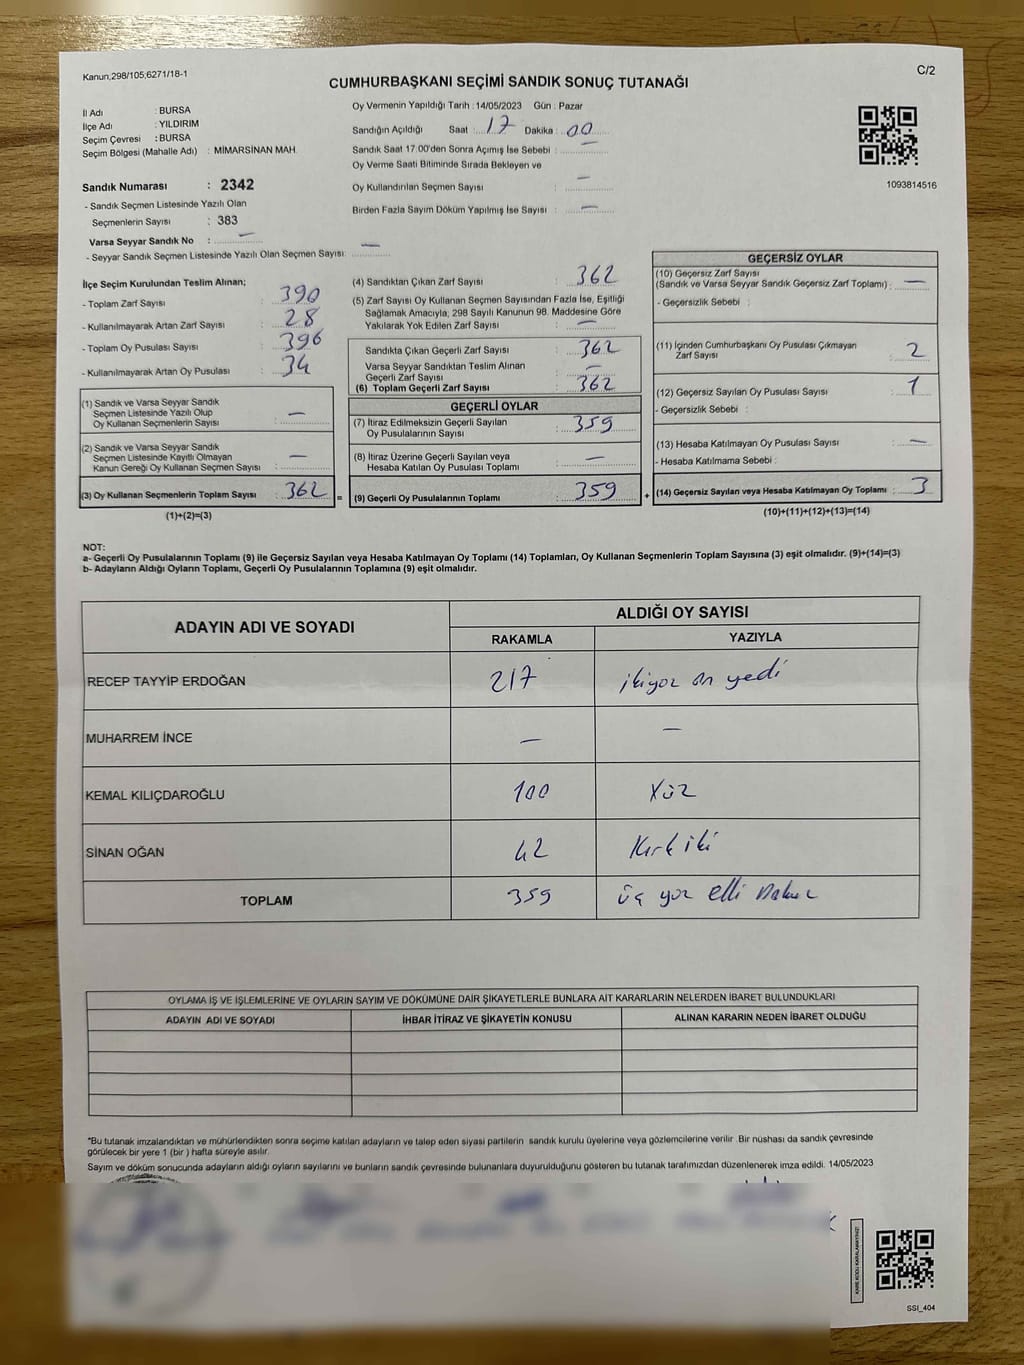 Kanun,298/105,6271/18-1
C/2
CUMHURBAŞKANI SEÇİMİ SANDIK SONUÇ TUTANAĞI
İl Adı : BURSA
İlçe Adı : YILDIRIM
Seçim Çevresi : BURSA
Seçim Bölgesi (Mahalle Adı) : MİMARSİNAN MAH.
Sandık Numarası : 2342
- Sandık Seçmen Listesinde Yazılı Olan
Seçmenlerin Sayısı : 383
Varsa Seyyar Sandık No : —
- Seyyar Sandık Seçmen Listesinde Yazılı Olan Seçmen Sayısı: —
Oy Vermenin Yapıldığı Tarih : 14/05/2023 Gün : Pazar
Sandığın Açıldığı Saat : 17 Dakika : 00
Sandık Saat 17.00'den Sonra Açımış İse Sebebi : —
Oy Verme Saati Bitiminde Sırada Bekleyen ve
Oy Kullandırılan Seçmen Sayısı : —
Birden Fazla Sayım Döküm Yapılmış İse Sayısı : —
1093814516
İlçe Seçim Kurulundan Teslim Alınan;
- Toplam Zarf Sayısı : 390
- Kullanılmayarak Artan Zarf Sayısı : 28
- Toplam Oy Pusulası Sayısı : 396
- Kullanılmayarak Artan Oy Pusulası : 34
(1) Sandık ve Varsa Seyyar Sandık
Seçmen Listesinde Yazılı Olup
Oy Kullanan Seçmenlerin Sayısı : —
(2) Sandık ve Varsa Seyyar Sandık
Seçmen Listesinde Kayıtlı Olmayan
Kanun Gereği Oy Kullanan Seçmen Sayısı : —
(3) Oy Kullanan Seçmenlerin Toplam Sayısı : 362 =
(1)+(2)=(3)
(4) Sandıktan Çıkan Zarf Sayısı : 362
(5) Zarf Sayısı Oy Kullanan Seçmen Sayısından Fazla İse, Eşitliği
Sağlamak Amacıyla, 298 Sayılı Kanunun 98. Maddesine Göre
Yakılarak Yok Edilen Zarf Sayısı : —
Sandıkta Çıkan Geçerli Zarf Sayısı : 362
Varsa Seyyar Sandıktan Teslim Alınan
Geçerli Zarf Sayısı : —
(6) Toplam Geçerli Zarf Sayısı : 362
GEÇERLİ OYLAR
(7) İtiraz Edilmeksizin Geçerli Sayılan
Oy Pusulalarının Sayısı : 359
(8) İtiraz Üzerine Geçerli Sayılan veya
Hesaba Katılan Oy Pusulası Toplamı : —
(9) Geçerli Oy Pusulalarının Toplamı : 359 +
GEÇERSİZ OYLAR
(10) Geçersiz Zarf Sayısı
(Sandık ve Varsa Seyyar Sandık Geçersiz Zarf Toplamı) : —
- Geçersizlik Sebebi :
(11) İçinden Cumhurbaşkanı Oy Pusulası Çıkmayan
Zarf Sayısı : 2
(12) Geçersiz Sayılan Oy Pusulası Sayısı : 1
- Geçersizlik Sebebi :
(13) Hesaba Katılmayan Oy Pusulası Sayısı : —
- Hesaba Katılmama Sebebi :
(14) Geçersiz Sayılan veya Hesaba Katılmayan Oy Toplamı : 3
(10)+(11)+(12)+(13)=(14)
NOT:
a- Geçerli Oy Pusulalarının Toplamı (9) ile Geçersiz Sayılan veya Hesaba Katılmayan Oy Toplamı (14) Toplamları, Oy Kullanan Seçmenlerin Toplam Sayısına (3) eşit olmalıdır. (9)+(14)=(3)
b- Adayların Aldığı Oyların Toplamı, Geçerli Oy Pusulalarının Toplamına (9) eşit olmalıdır.
ADAYIN ADI VE SOYADI
ALDIĞI OY SAYISI
RAKAMLA YAZIYLA
RECEP TAYYİP ERDOĞAN 217 ikiyüz on yedi
MUHARREM İNCE — —
KEMAL KILIÇDAROĞLU 100 Yüz
SİNAN OĞAN 42 Kırk iki
TOPLAM 359 üç yüz elli Dokuz
OYLAMA İŞ VE İŞLEMLERİNE VE OYLARIN SAYIM VE DÖKÜMÜNE DAİR ŞİKAYETLERLE BUNLARA AİT KARARLARIN NELERDEN İBARET BULUNDUKLARI
ADAYIN ADI VE SOYADI İHBAR İTİRAZ VE ŞİKAYETİN KONUSU ALINAN KARARIN NEDEN İBARET OLDUĞU
*Bu tutanak imzalandıktan ve mühürlendikten sonra seçime katılan adayların ve talep eden siyasi partilerin sandık kurulu üyelerine veya gözlemcilerine verilir. Bir nüshası da sandık çevresinde
görülecek bir yere 1 (bir ) hafta süreyle asılır.
Sayım ve döküm sonucunda adayların aldığı oyların sayılarını ve bunların sandık çevresinde bulunanlara duyurulduğunu gösteren bu tutanak tarafımızdan düzenlenerek imza edildi. 14/05/2023
KARE KODU KARALAMAYINIZ!
SSI_404